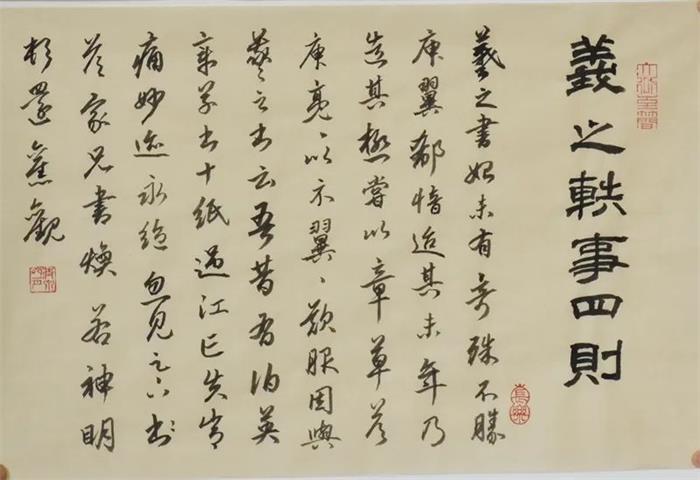 羲之軼事四則
羲之書始未有奇殊不勝
庾翼郗愔迨其末年乃
造其極嘗以章草答
庾亮、以示翼、歎服因與
羲之書云吾昔有伯英
章草書十紙過江亡失常
痛妙迹永絕忽見足下
答家兄書煥若神明
頓還舊觀
長樂